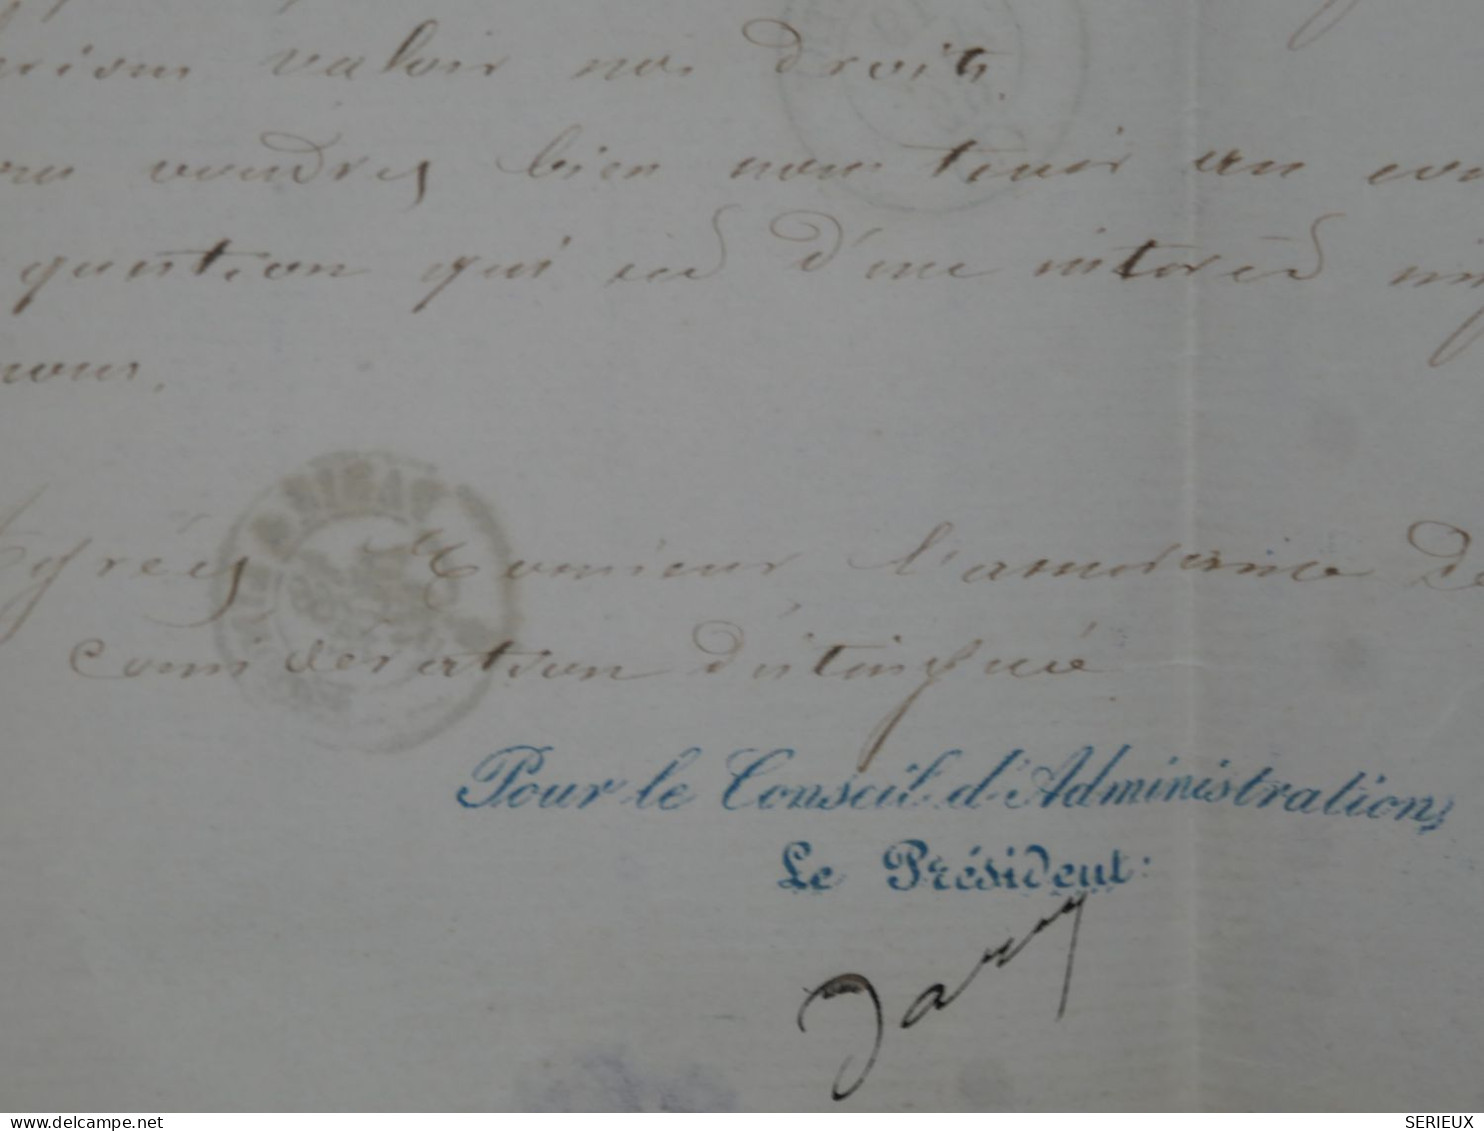 valoir nos droits.
voudrés bien nous tenir au
question qui est d'une intérêt
nous.
Agréés Monsieur l'assurance de
considération distinguée
Pour le Conseil d'Administration,
Le Président:
delcampe.net
SERIEUX